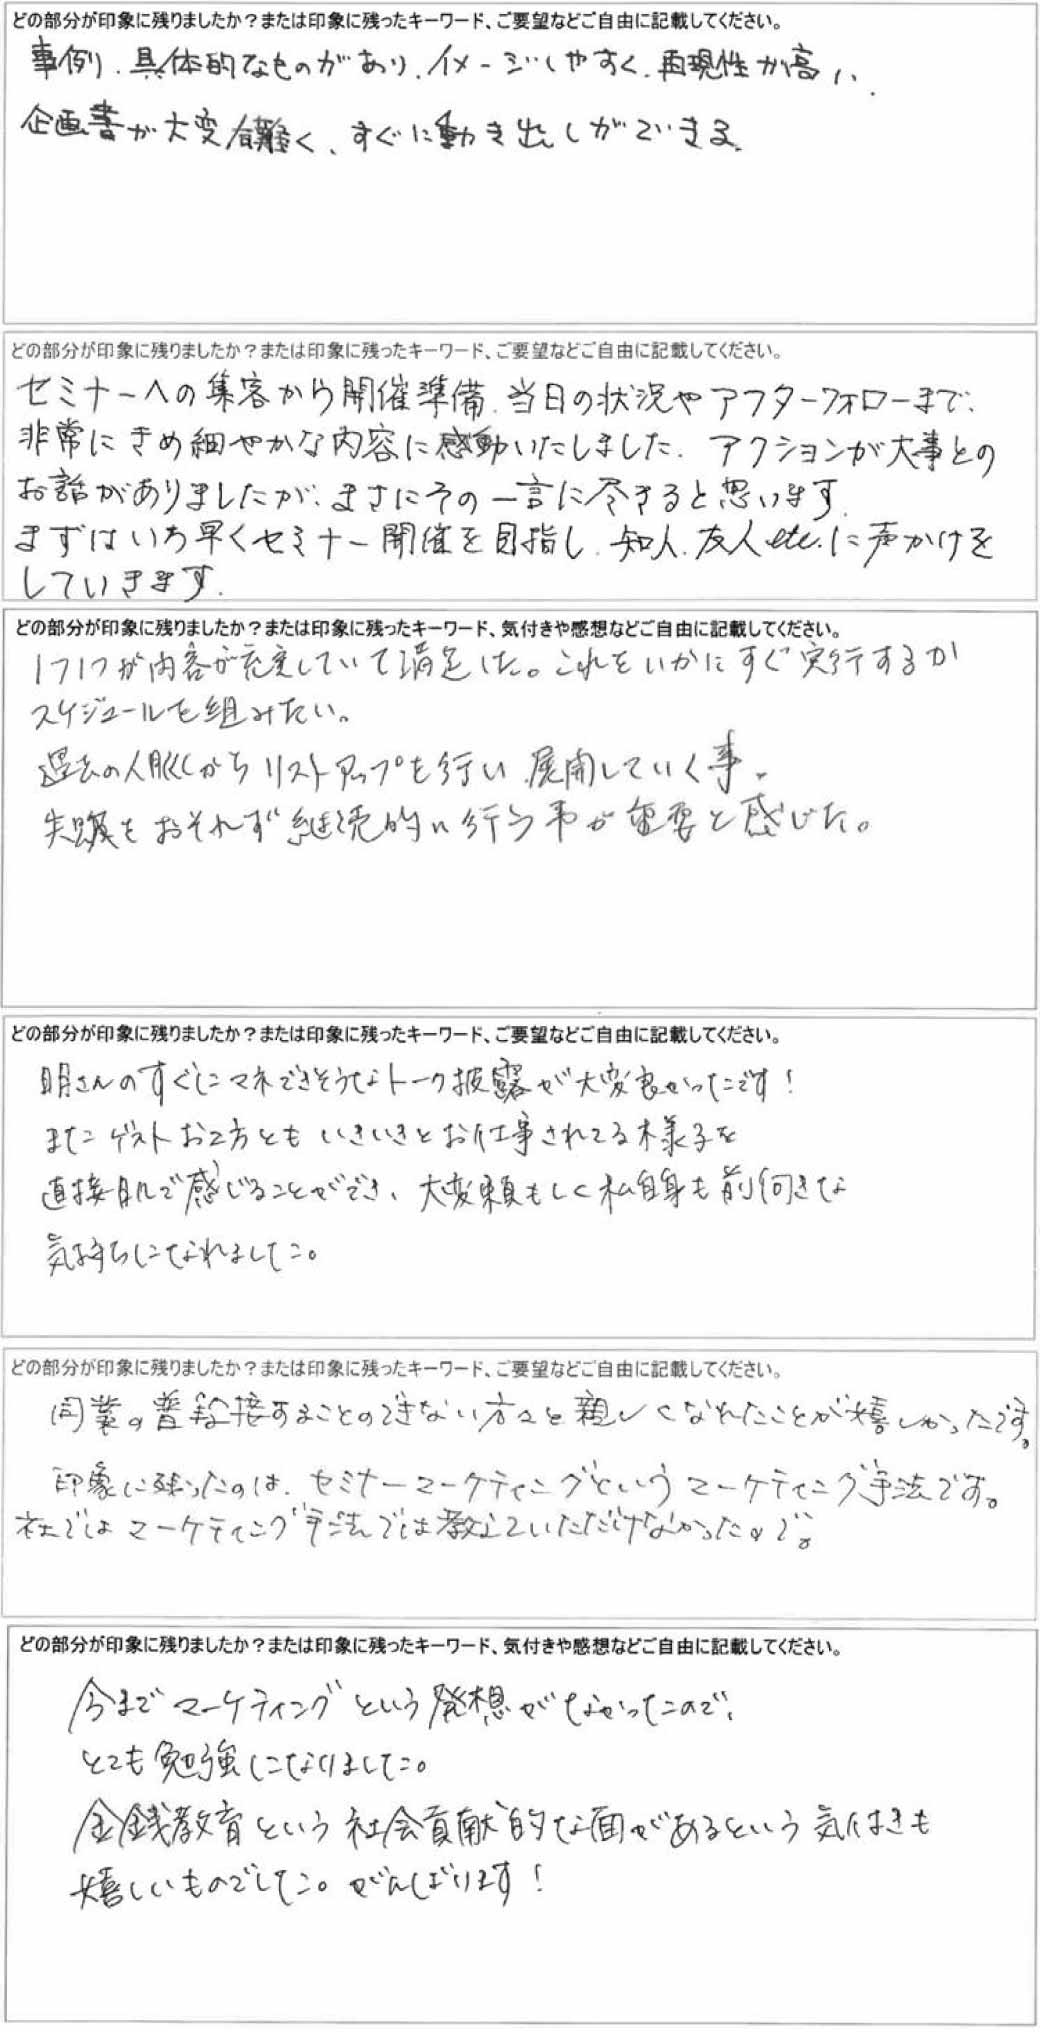 どの部分が印象に残りましたか？または印象に残ったキーワード、ご要望などご自由に記載してください。
事例、具体的なものがあり、イメージしやすく、再現性が高い、
企画書が大変有難く、すぐに動き出しができる。
どの部分が印象に残りましたか？または印象に残ったキーワード、ご要望などご自由に記載してください。
セミナーへの集客から開催準備、当日の状況やアフターフォローまで、
非常にきめ細やかな内容に感動いたしました。アクションが大事との
お話がありましたが、まさにその一言に尽きると思います。
まずはいち早くセミナー開催を目指し、知人、友人etc.に声かけを
していきます。
どの部分が印象に残りましたか？または印象に残ったキーワード、気付きや感想などご自由に記載してください。
内容が充実していて満足した。これをいかにすぐ実行するか
スケジュールを組みたい。
過去の人脈からリストアップを行い、展開していく事。
失敗をおそれず継続的に行う事が重要と感じた。
どの部分が印象に残りましたか？または印象に残ったキーワード、ご要望などご自由に記載してください。
明さんのすぐにマネできそうなトーク披露が大変良かったです！
またゲストお2方ともいきいきとお仕事されてる様子を
直接肌で感じることができ、大変頼もしく私自身も前向きな
気持ちになれました。
どの部分が印象に残りましたか？または印象に残ったキーワード、ご要望などご自由に記載してください。
同業の普段接することのできない方々と親しくなれたことが嬉しかったです。
印象に残ったのは、セミナーマーケティングというマーケティング手法です。
本社ではマーケティング手法では教えていただけなかったので。
どの部分が印象に残りましたか？または印象に残ったキーワード、気付きや感想などご自由に記載してください。
今までマーケティングという発想がなかったので、
とても勉強になりました。
金銭教育という社会貢献的な面があるという気付きも
嬉しいものでした。がんばります！